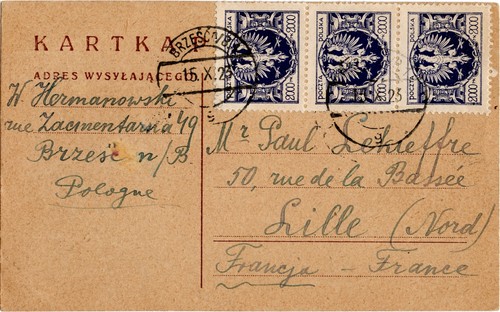 KARTKA
ADRES WYSYŁAJĄCEGO
W. Hermanowski
rue Zacmentarna 49
Brześć n/B
Pologne
Mr Paul
50, rue de la Bassée
Lille (Nord)
Francja - France
BRZEŚĆ N/BUG
15.X.23
POLSKA
2000
POCZTA
POLSKA
2000
POCZTA
POLSKA
2000
POCZTA